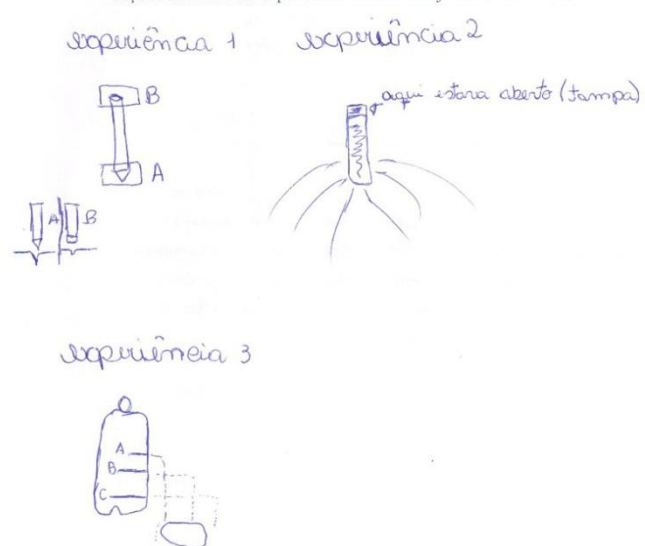 experiência 1
experiência 2
B
A
aqui estara aberto (tampa)
A
B
experiência 3
A
B
C